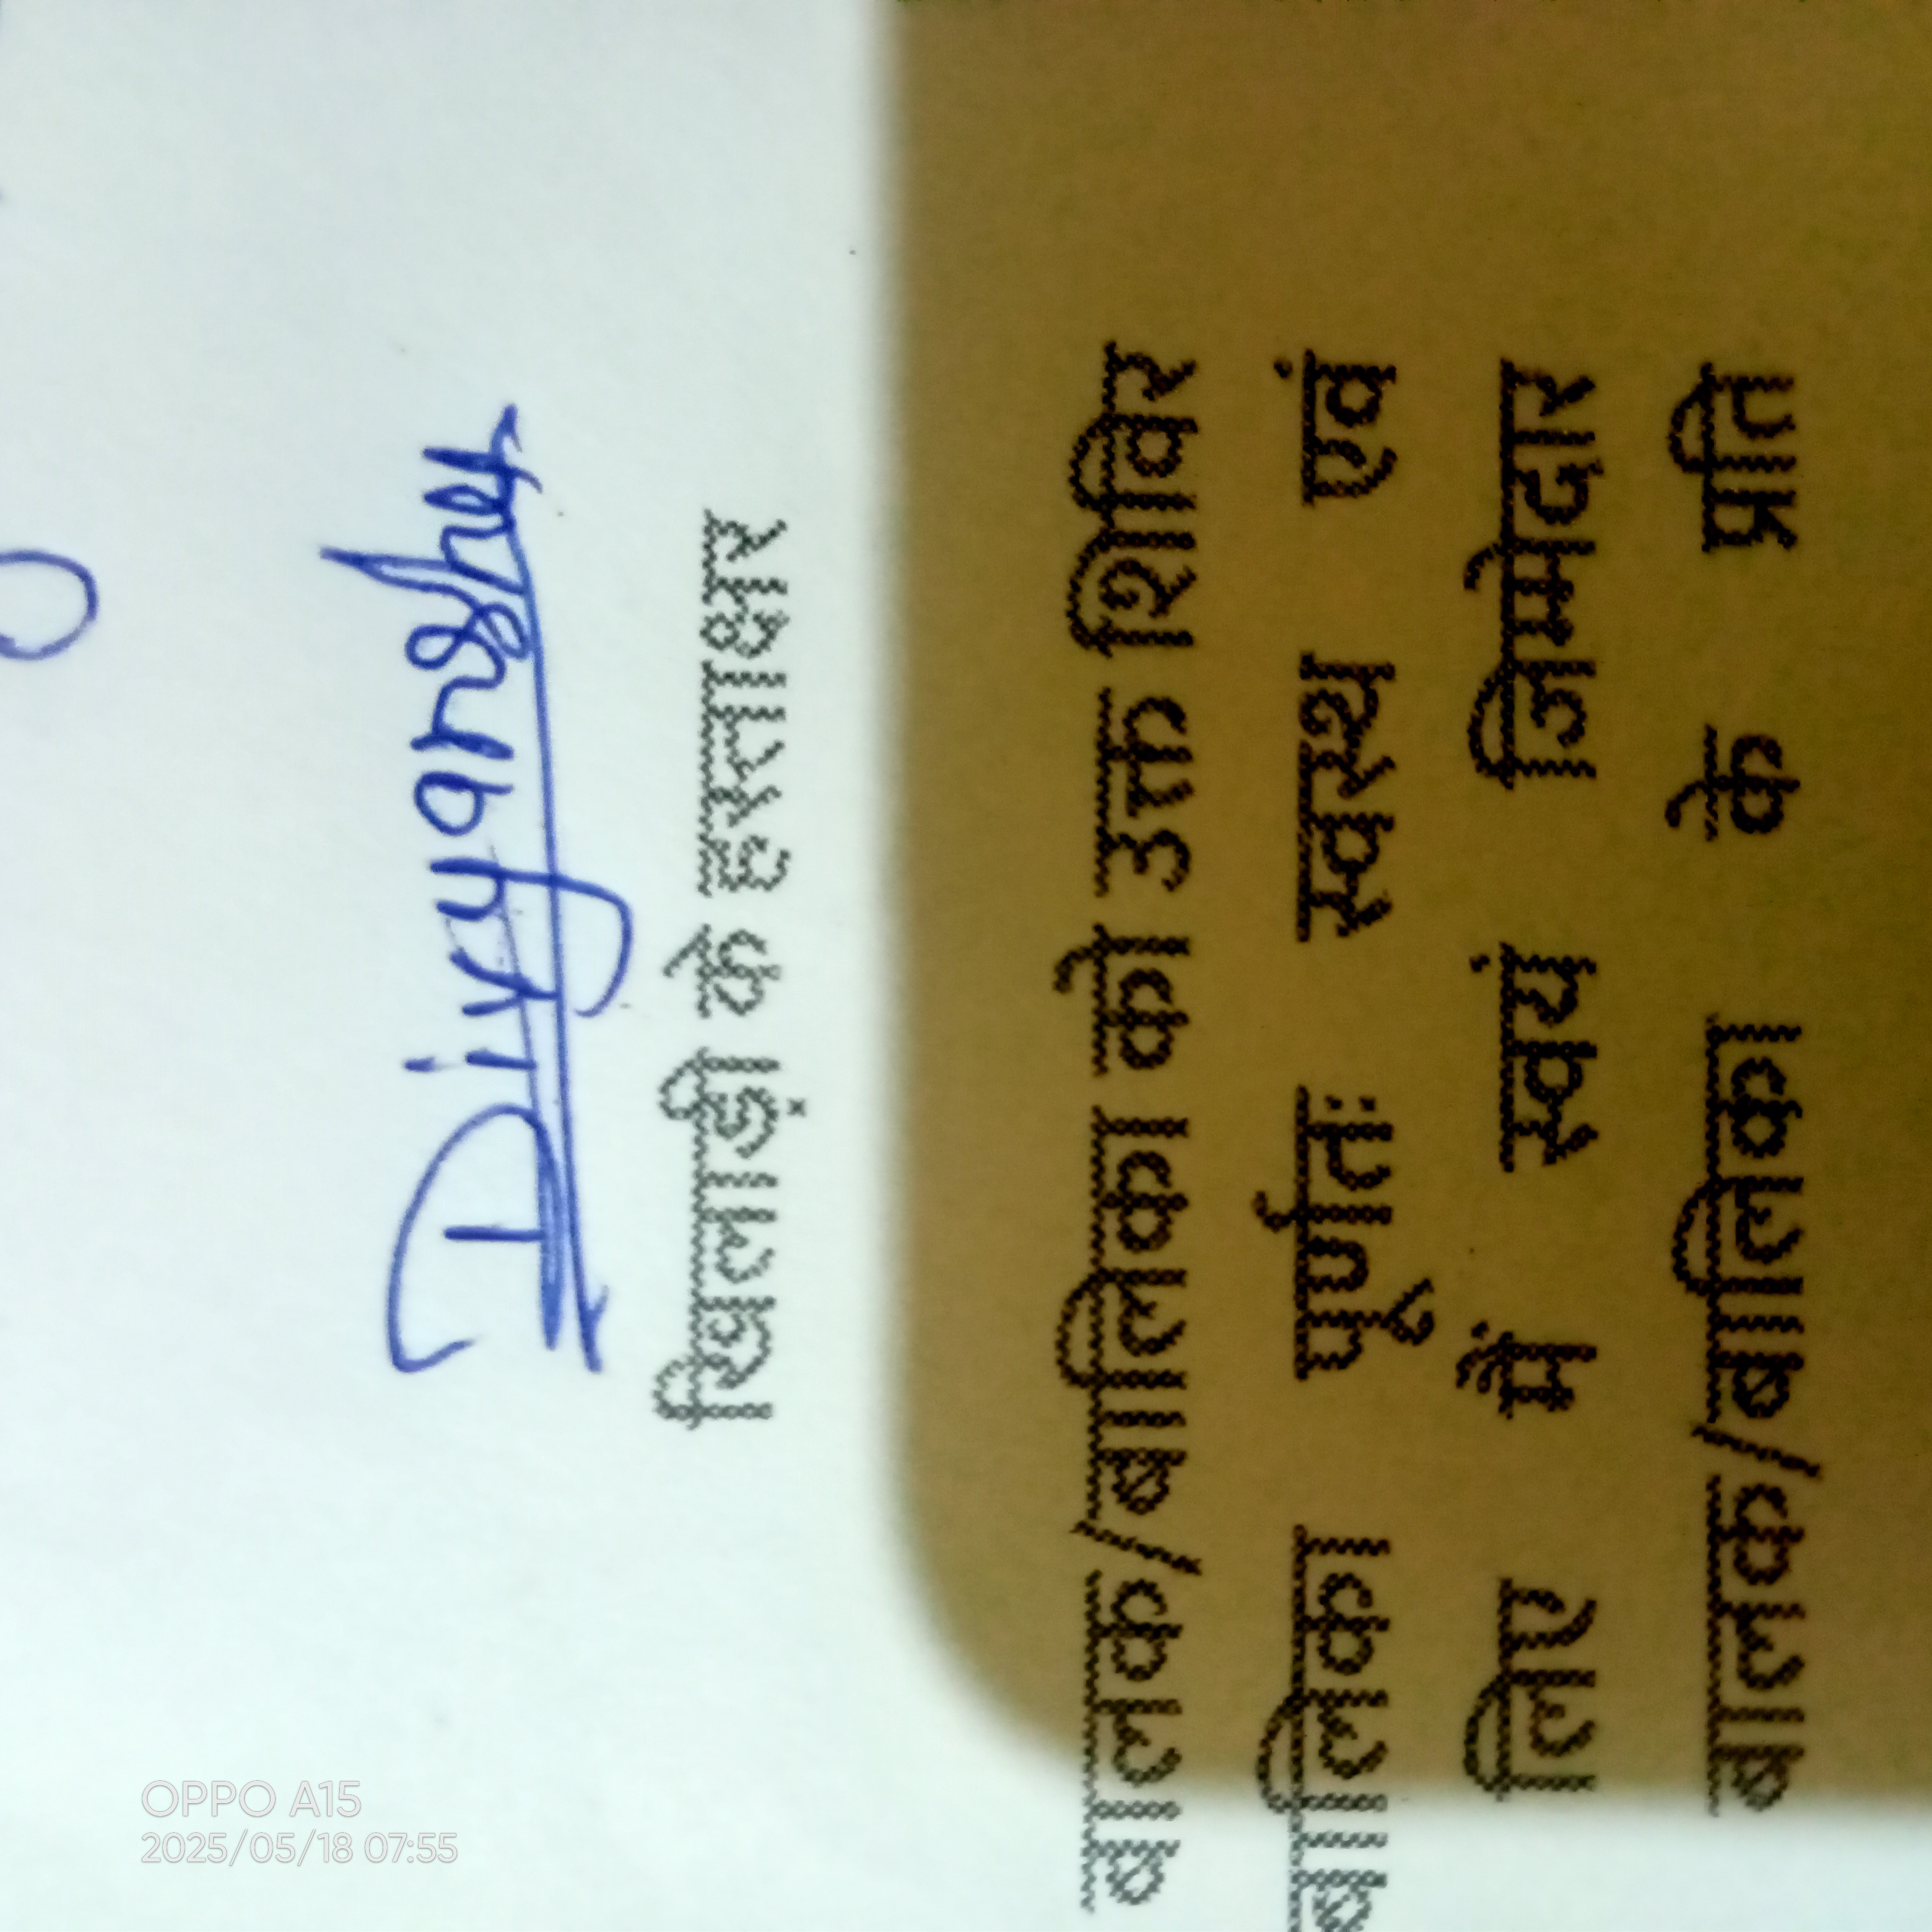 Divyanshu
खिलाड़ी के हस्ताक्षर
बालक/बालिका को उक्त शिविर
बालिका पूर्णतः स्वस्थ एवं
लिए मैं स्वयं जिम्मेदार
बालक/बालिका के प्रति
OPPO A15
2025/05/18 07:55